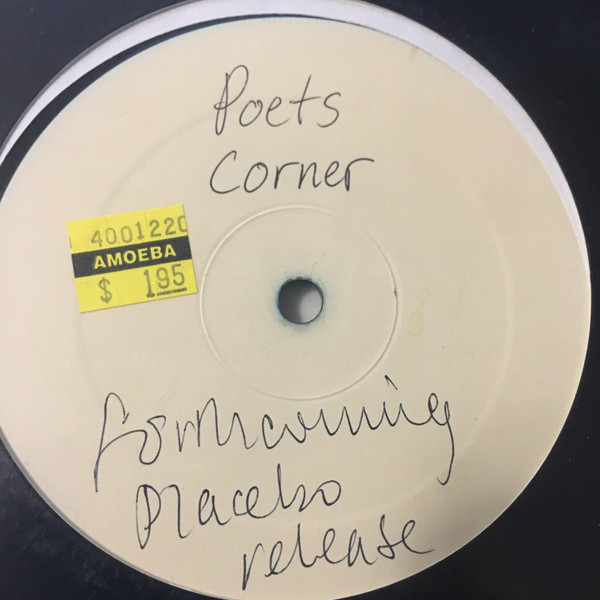 Poets
Corner
4001220
AMOEBA
$ 195
forthcoming
Placebo
release